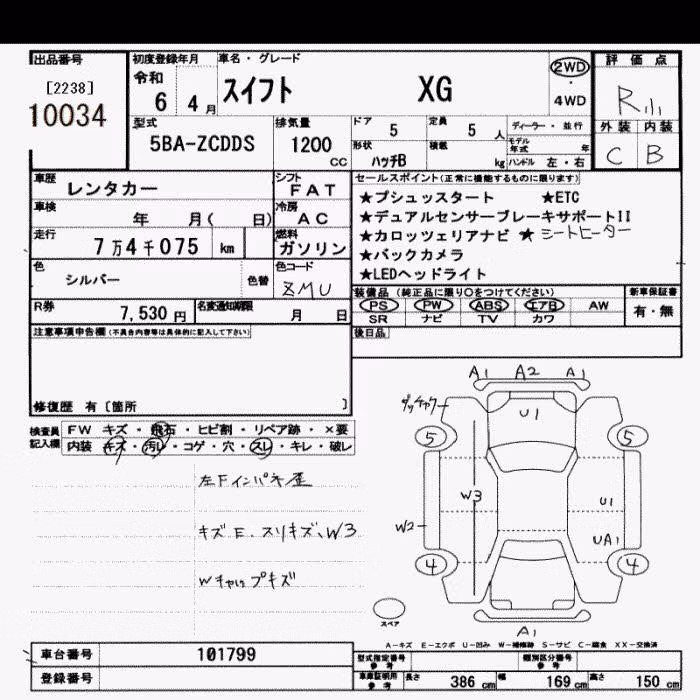 出品番号 初度登録年月 車名・グレード 評価点
[2238]
10034
令和 6年 4月 スイフト XG 2WD・4WD R
外装 内装
C B
型式 5BA-ZCDDS 排気量 1200 CC
ドア 5 定員 5 人 ディーラー・並行
形状 ハッチB 積載 kg モデル年式 年
ハンドル 左・右
車歴 レンタカー シフト FAT
車検 年 月( 日) 冷房 AC
走行 7万4千075 km 燃料 ガソリン
色 シルバー 色替 色コード ZMU
R券 7,530円 名変通知期限 月 日
セールスポイント(正常に機能するものに限ります)
★プシュッスタート ★ETC
★デュアルセンサーブレーキサポートII
★カロッツェリアナビ ★シートヒーター
★バックカメラ
★LEDヘッドライト
装備品(純正品に限り○をつけてください) 新車保証書
PS PW ABS エアB AW 有・無
SR ナビ TV カワ
後日品
注意事項申告欄(不具合内容等は具体的に記入して下さい)
修復歴 有〔箇所 〕
検査員記入欄 FW キズ・飛石・ヒビ割・リペア跡・×要
内装 キズ・汚れ・コゲ・穴・スレ・キレ・破レ
左Fインパネ歪
キズE、スリキズ、W3
A1 A2 A1
U1
5 5
W3 U1
W2 UA1
4 4
スペア
A1
A-キズ E-エクボ U-凹み W-補修跡 S-サビ C-腐食 XX-交換済
車台番号 101799
登録番号
型式指定番号 参考 類別区分番号 参考
車庫証明用 参考 長さ 386 cm 幅 169 cm 高さ 150 cm